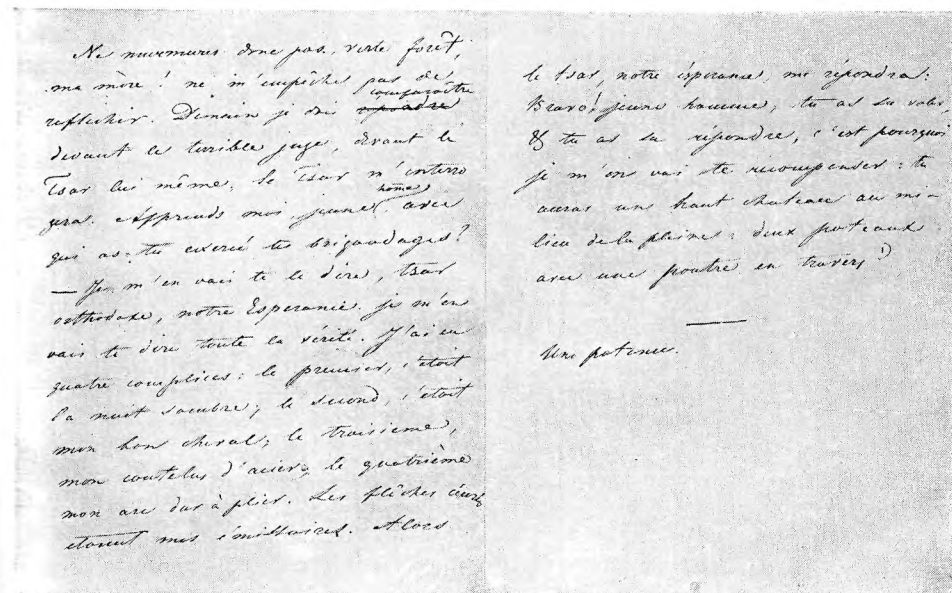 Ne murmures donc pas, verte forêt,
ma mère! ne m'empêches pas de
comparaître
reflechir. Demain je dois repondre
devant le terrible juge, devant le
Tsar lui même. Le Tsar m'interro
homme
gera. Apprends moi, jeune avec
qui as-tu exercé te brigandages?
— Je m'en vais te le dire, tsar
orthodoxe, notre Esperance. je m'en
vais te dire toute la vérité. J'ai eu
quatre complices: le premier, c'étoit
la nuit sombre; le second, c'étoit
mon bon cheval; le troisieme,
mon coutelas d'acier; le quatrième
mon arc dur à plier. Les flêches
etoient mes émissaires. Alors
le tsar, notre ésperance, me répondra:
Bravo! jeune homme, tu as su voler
& tu as su répondre, c'est pourquoi
je m'en vais te recompenser: tu
auras un haut chateau au mi-
lieu de la plaine: deux poteaux
avec une poutre en travers 1)
Une potence.